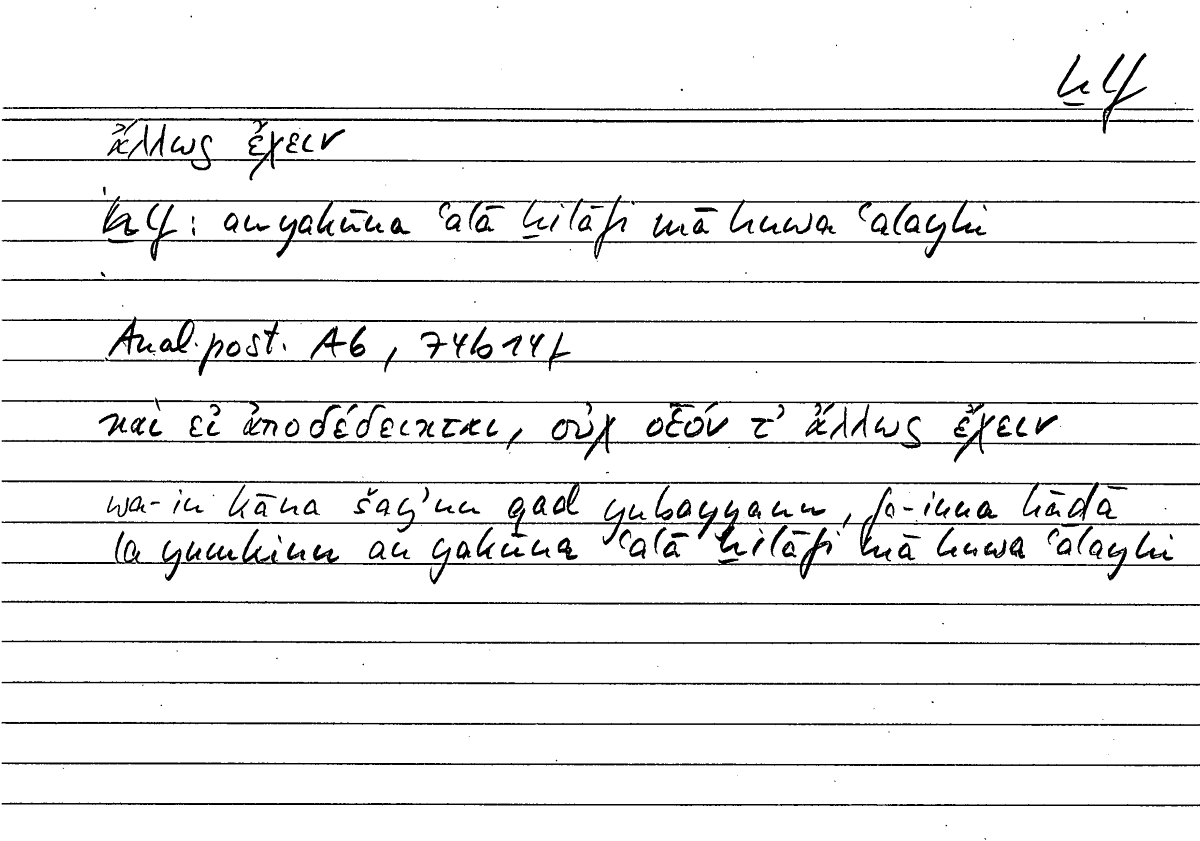 ḫlf
ἄλλως ἔχειν
ḫlf: an yakūna ʿalā ḫilāfi mā huwa ʿalayhi
Anal. post. A6, 74b14f
καὶ εἰ ἀποδέδεικται, οὐχ οἷόν τ' ἄλλως ἔχειν
wa-in kāna šayʾun qad yubayyanu, fa-inna hāḏā
la yumkinu an yakūna ʿalā ḫilāfi mā huwa ʿalayhi